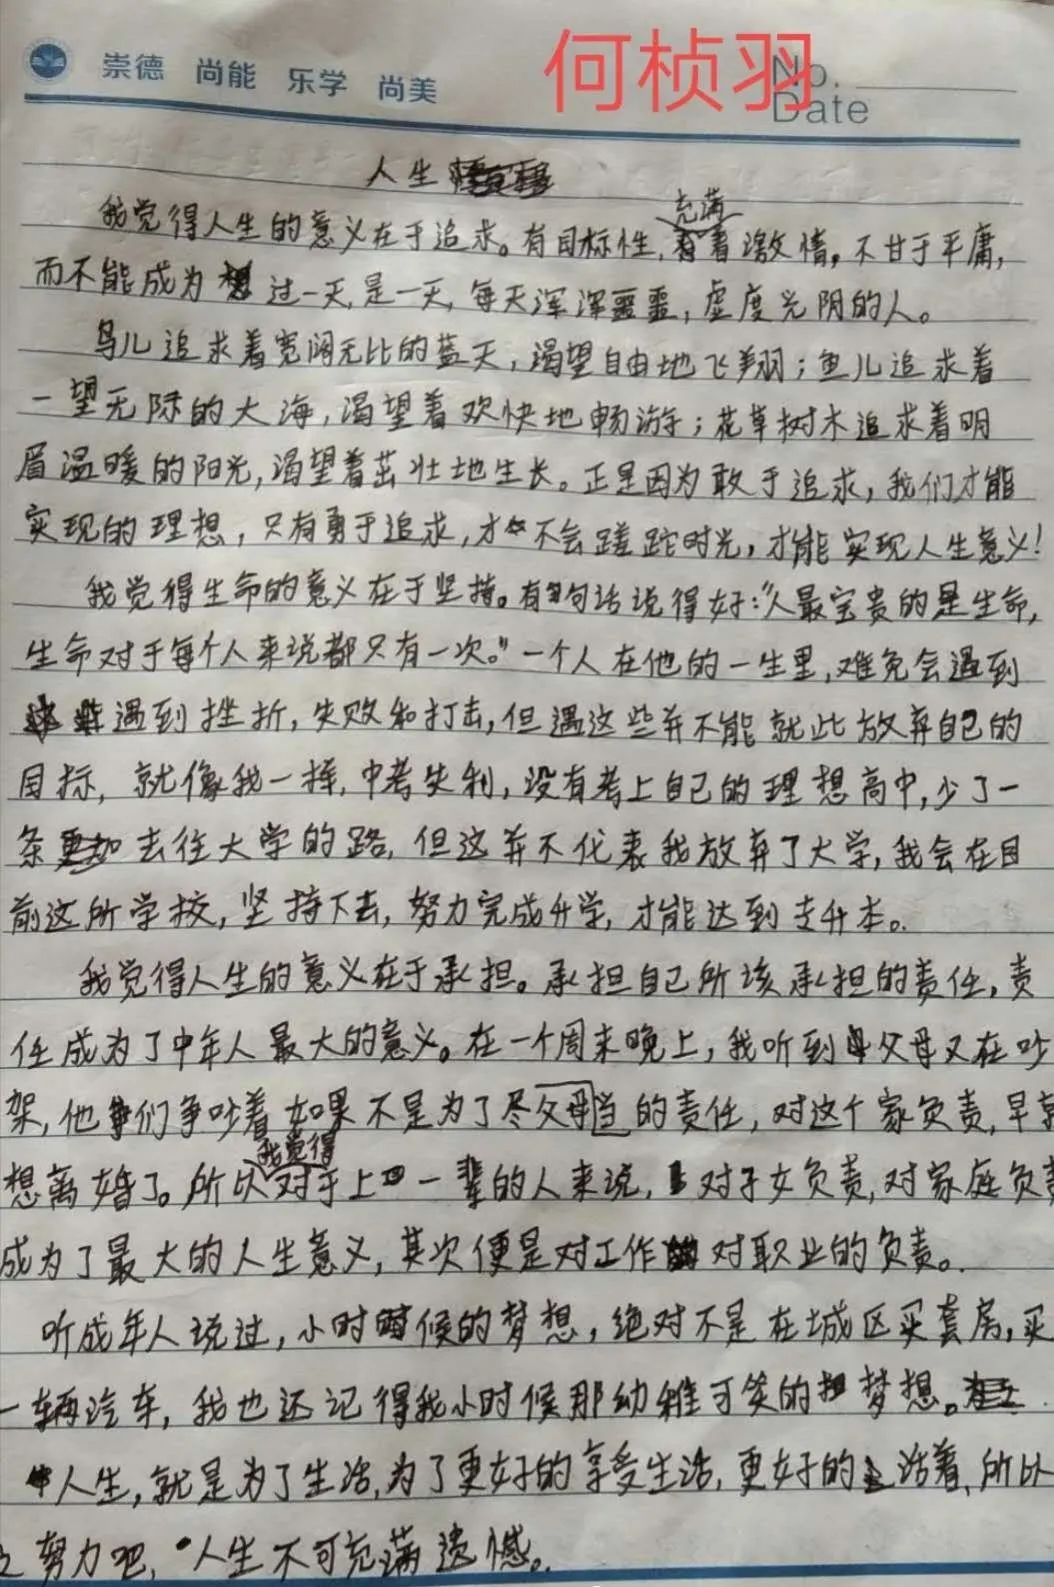 崇德 尚能 乐学 尚美
何桢羽
No.
Date
人生
我觉得人生的意义在于追求。有目标性,充满着激情,不甘于平庸,
而不能成为过一天,是一天,每天浑浑噩噩,虚度光阴的人。
鸟儿追求着宽阔无比的蓝天,渴望自由地飞翔;鱼儿追求着
一望无际的大海,渴望着欢快地畅游;花草树木追求着明
眉温暖的阳光,渴望着茁壮地生长。正是因为敢于追求,我们才能
实现的理想,只有勇于追求,才不会蹉跎时光,才能实现人生意义!
我觉得生命的意义在于坚持。有句话说得好:“人最宝贵的是生命,
生命对于每个人来说都只有一次。”一个人在他的一生里,难免会遇到
遇到挫折,失败和打击,但遇这些并不能就此放弃自己的
目标,就像我一样,中考失利,没有考上自己的理想高中,少了一
条去往大学的路,但这并不代表我放弃了大学,我会在目
前这所学校,坚持下去,努力完成升学,才能达到专升本。
我觉得人生的意义在于承担。承担自己所该承担的责任,责
任成为了中年人最大的意义。在一个周末晚上,我听到父母又在吵
架,他们争吵着如果不是为了尽父母当的责任,对这个家负责,早就
想离婚了。所以我觉得对于上一辈的人来说,对子女负责,对家庭负责
成为了最大的人生意义,其次便是对工作对职业的负责。
听成年人说过,小时候的梦想,绝对不是在城区买套房,买
一辆汽车,我也还记得我小时候那幼稚可笑的梦想。
人生,就是为了生活,为了更好的享受生活,更好的活着,所以
努力吧,人生不可充满遗憾。